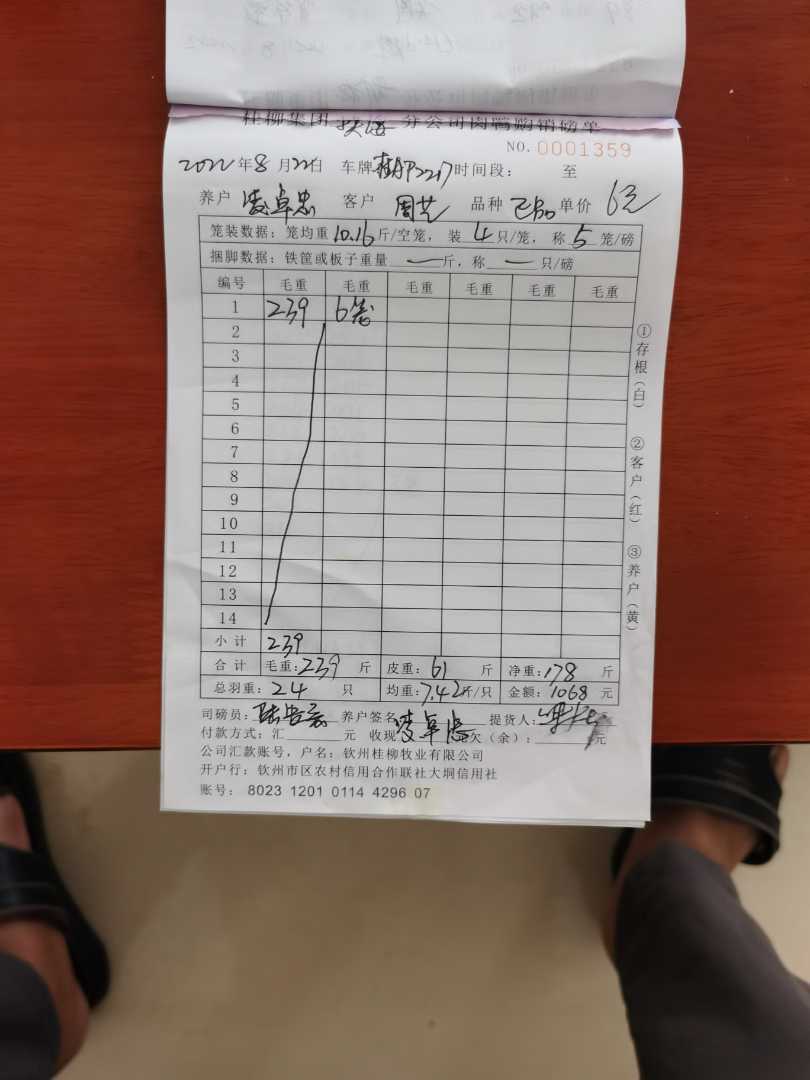 桂柳集团 分公司肉鸭购销磅单
NO. 0001359
2022年8月22日 车牌 2217 时间段: 至
养户 凌卓忠 客户 周艺 品种 正品 单价 6元
笼装数据: 笼均重 10.16 斤/空笼, 装 4 只/笼, 称 5 笼/磅
捆脚数据: 铁筐或板子重量 — 斤, 称 — 只/磅
编号 毛重 毛重 毛重 毛重 毛重 毛重
1 239 6笼
2
3
4
5
6
7
8
9
10
11
12
13
14
小计 239
合计 毛重: 239 斤 皮重: 61 斤 净重: 178 斤
总羽重: 24 只 均重: 7.42 斤/只 金额: 1068 元
司磅员: 养户签名 凌卓忠 提货人:
付款方式: 汇 元 收现 欠(余): 元
公司汇款账号, 户名: 钦州桂柳牧业有限公司
开户行: 钦州市区农村信用合作联社大垌信用社
账号: 8023 1201 0114 4296 07
①存根(白)
②客户(红)
③养户(黄)